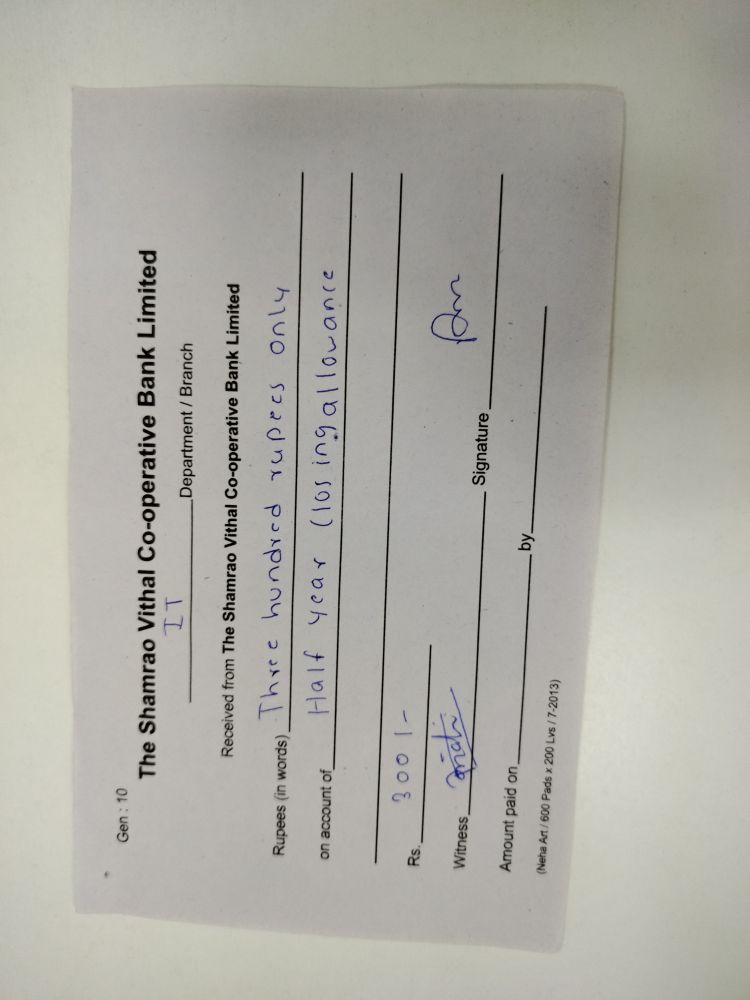 Gen : 10
The Shamrao Vithal Co-operative Bank Limited
IT Department / Branch
Received from The Shamrao Vithal Co-operative Bank Limited
Rupees (in words) Three hundred rupees only
on account of Half year closing allowance
Rs. 300/-
Witness Signature
Amount paid on by
(Neha Art / 600 Pads x 200 Lvs / 7-2013)